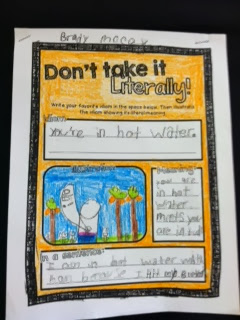 Brady McCoy
Don't take it
Literally!
Write your favorite idiom in the space below. Then, illustrate
the idiom showing its literal meaning.
Idiom:
You're in hot water.
Illustration:
Meaning:
you are
in hot
water
meets you
are in trubl
In a sentence:
I am in hot water with
mom because I hit my